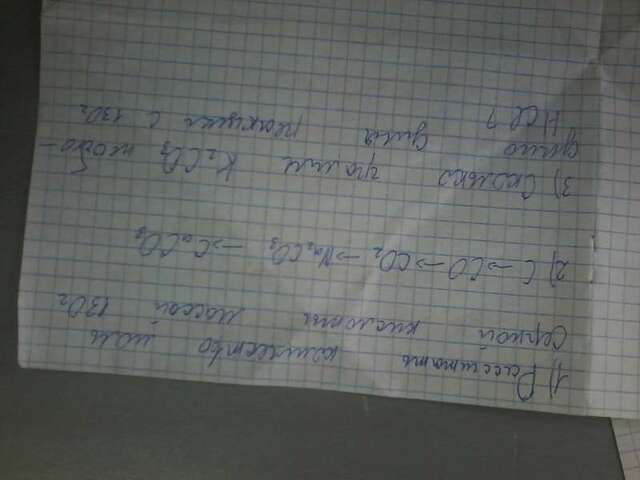 1) Рассчитать количество моль
серной кислоты массой 130г
2) C → CO → CO₂ → Na₂CO₃ → CaCO₃
3) Сколько грамм K₂CO₃ необхо-
димо для реакции с 130г
HCl?